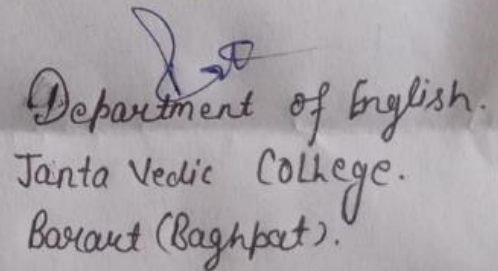 Department of English.
Janta Vedic College.
Baraut (Baghpat).